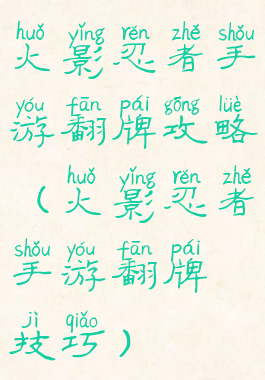 huǒ yǐng rěn zhě shǒu
火影忍者手
yóu fān pái gōng lüè
游翻牌攻略
huǒ yǐng rěn zhě
（火影忍者
shǒu yóu fān pái
手游翻牌
jì qiǎo
技巧）